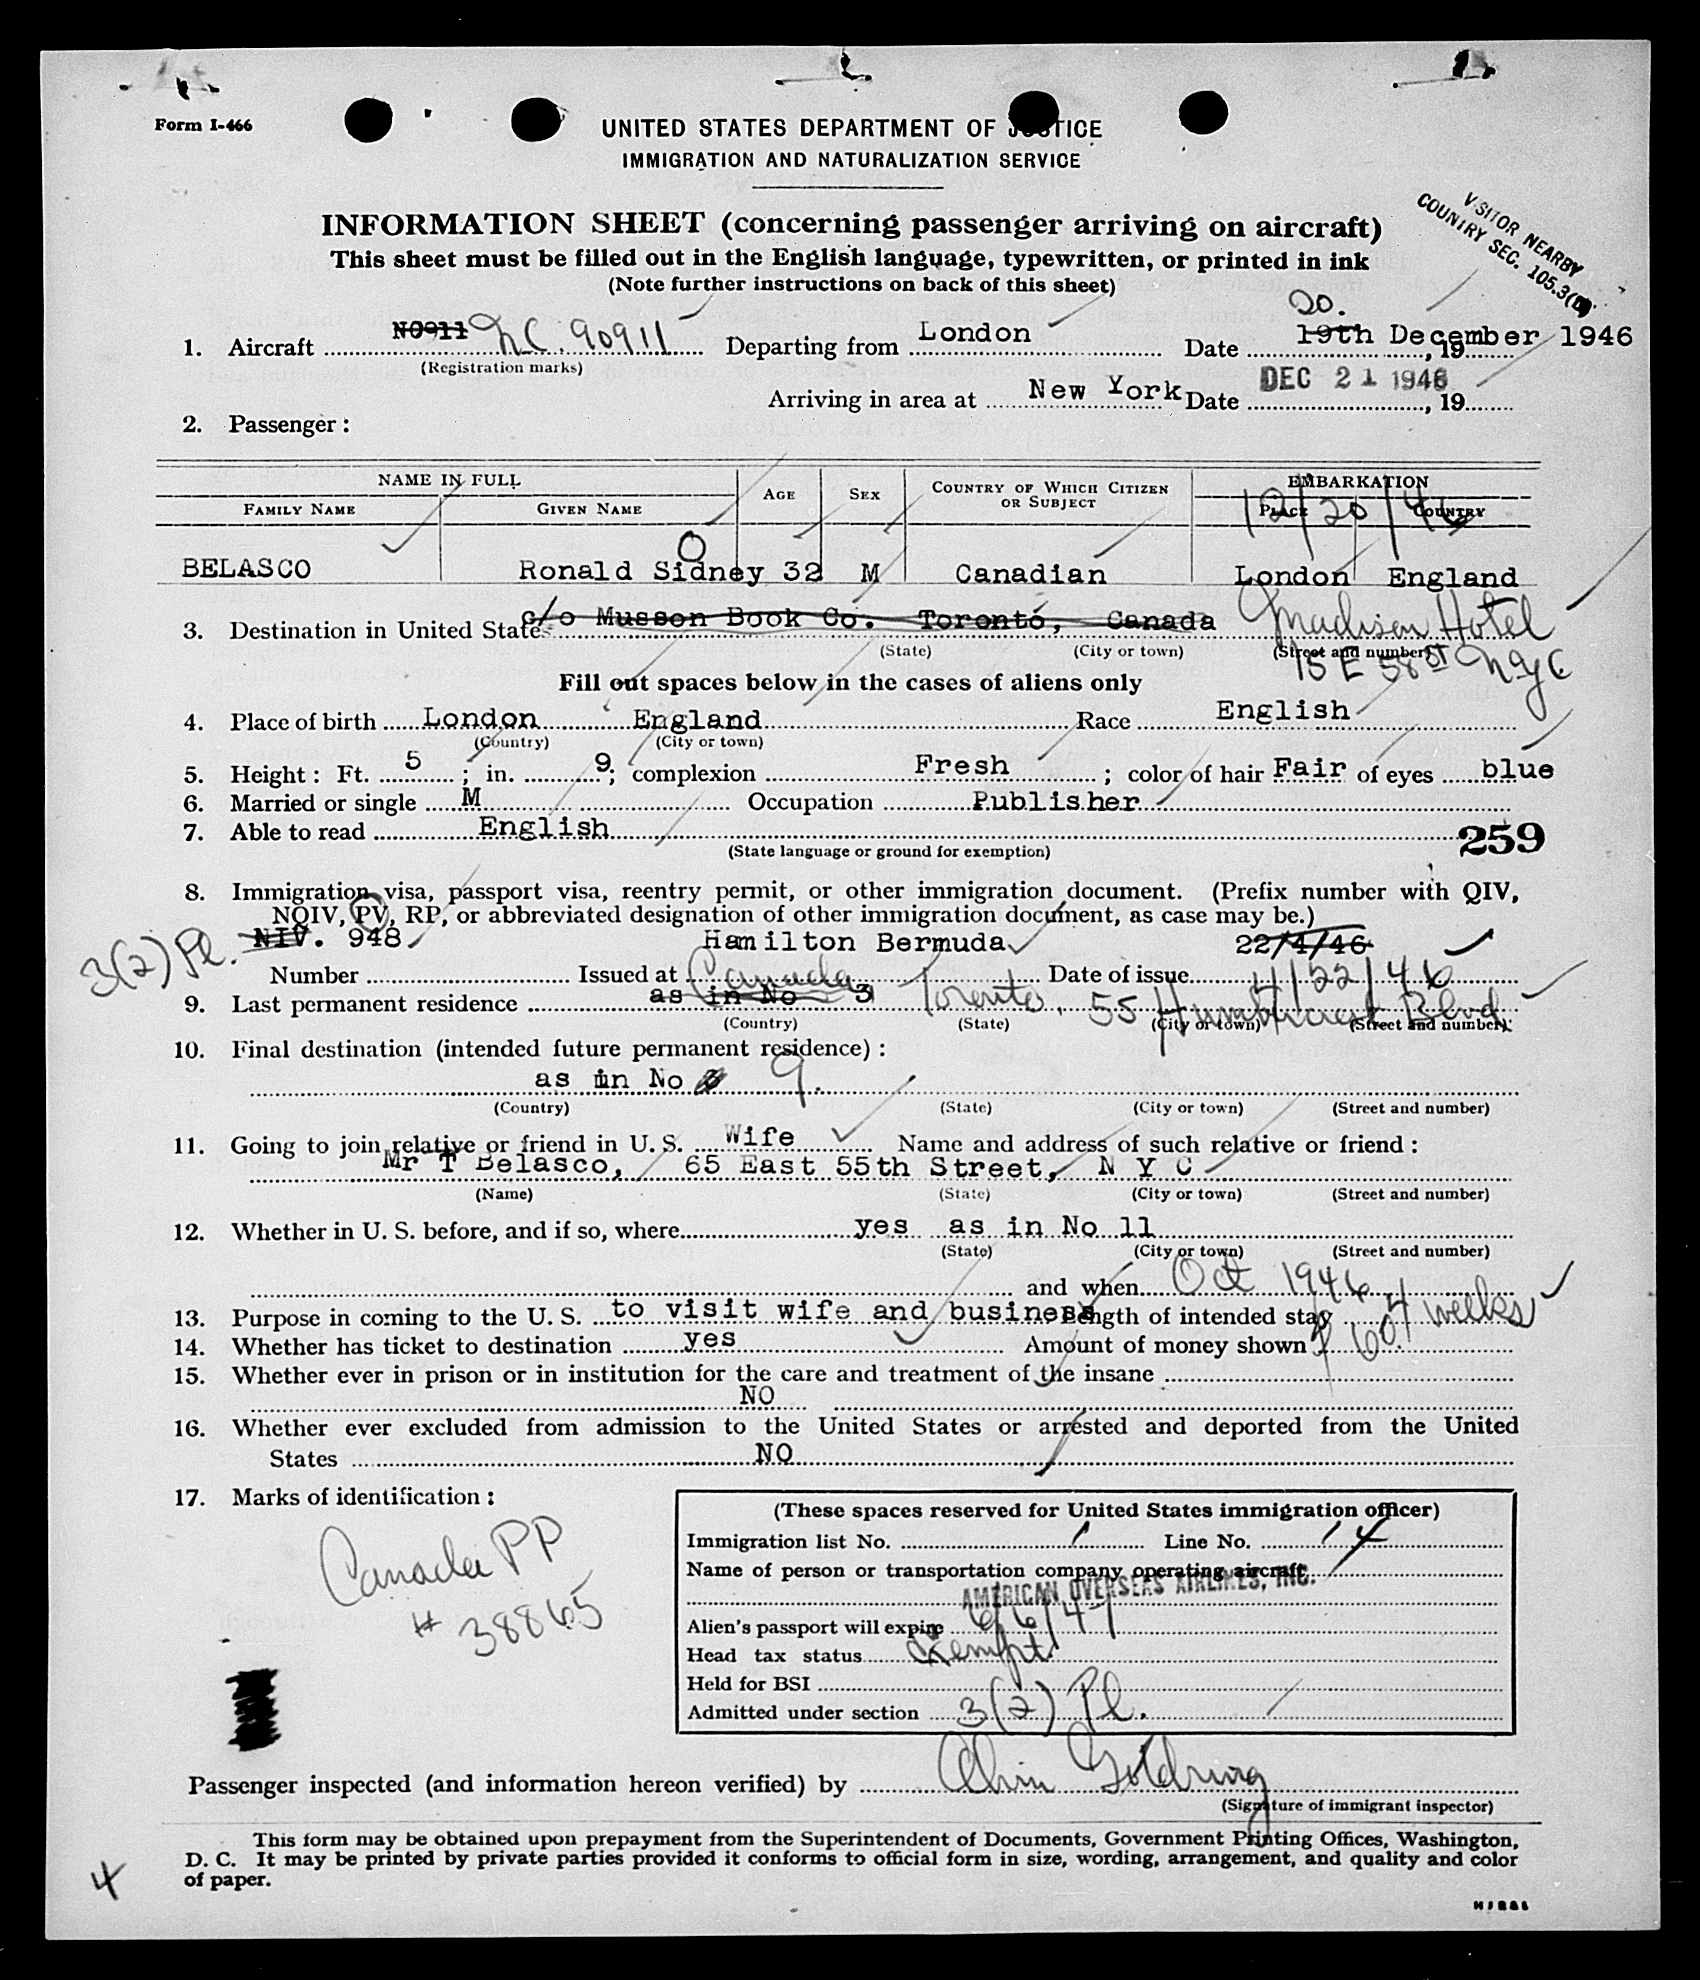 Form I-466
UNITED STATES DEPARTMENT OF JUSTICE
IMMIGRATION AND NATURALIZATION SERVICE
INFORMATION SHEET (concerning passenger arriving on aircraft)
This sheet must be filled out in the English language, typewritten, or printed in ink
(Note further instructions on back of this sheet)
VISITOR NEARBY
COUNTRY SEC. 105.3(
20.
1. Aircraft N0911 NC. 90911 Departing from London Date 19th December 1946, 19
(Registration marks)
Arriving in area at New York Date DEC 21 1946, 19
2. Passenger:
NAME IN FULL AGE SEX COUNTRY OF WHICH CITIZEN OR SUBJECT EMBARKATION
FAMILY NAME GIVEN NAME PLACE COUNTRY
12/20/46
O
BELASCO Ronald Sidney 32 M Canadian London England
3. Destination in United States c/o Musson Book Co. Toronto, Canada Madison Hotel
(State) (City or town) (Street and number)
15 E 58 ST NYC
Fill out spaces below in the cases of aliens only
4. Place of birth London England Race English
(Country) (City or town)
5. Height: Ft. 5; in. 9; complexion Fresh; color of hair Fair of eyes blue
6. Married or single M Occupation Publisher
7. Able to read English
259
(State language or ground for exemption)
8. Immigration visa, passport visa, reentry permit, or other immigration document. (Prefix number with QIV,
NQIV, PV, RP, or abbreviated designation of other immigration document, as case may be.)
3(2) Pl. NIV. 948 Hamilton Bermuda 22/4/46
Number Issued at Date of issue 4/22/46
9. Last permanent residence as in No 3 Canada Toronto, 55 Humbercrest Blvd.
(Country) (State) (City or town) (Street and number)
10. Final destination (intended future permanent residence):
as in No 3 9.
(Country) (State) (City or town) (Street and number)
11. Going to join relative or friend in U. S. Wife Name and address of such relative or friend:
Mr T Belasco, 65 East 55th Street, N Y C
(Name) (State) (City or town) (Street and number)
12. Whether in U. S. before, and if so, where yes as in No 11
(State) (City or town) (Street and number)
and when Oct 1946
13. Purpose in coming to the U. S. to visit wife and business Length of intended stay 4 weeks
14. Whether has ticket to destination yes Amount of money shown $ 60.
15. Whether ever in prison or in institution for the care and treatment of the insane
NO
16. Whether ever excluded from admission to the United States or arrested and deported from the United
States NO
17. Marks of identification:
Canada PP
# 38865
(These spaces reserved for United States immigration officer)
Immigration list No. 1 Line No. 14
Name of person or transportation company operating aircraft
AMERICAN OVERSEAS AIRLINES, INC.
Alien's passport will expire 6/6/47
Head tax status Exempt
Held for BSI
Admitted under section 3(2) Pl.
Passenger inspected (and information hereon verified) by Alvin Goldring
(Signature of immigrant inspector)
This form may be obtained upon prepayment from the Superintendent of Documents, Government Printing Offices, Washington,
D. C. It may be printed by private parties provided it conforms to official form in size, wording, arrangement, and quality and color
of paper.
4